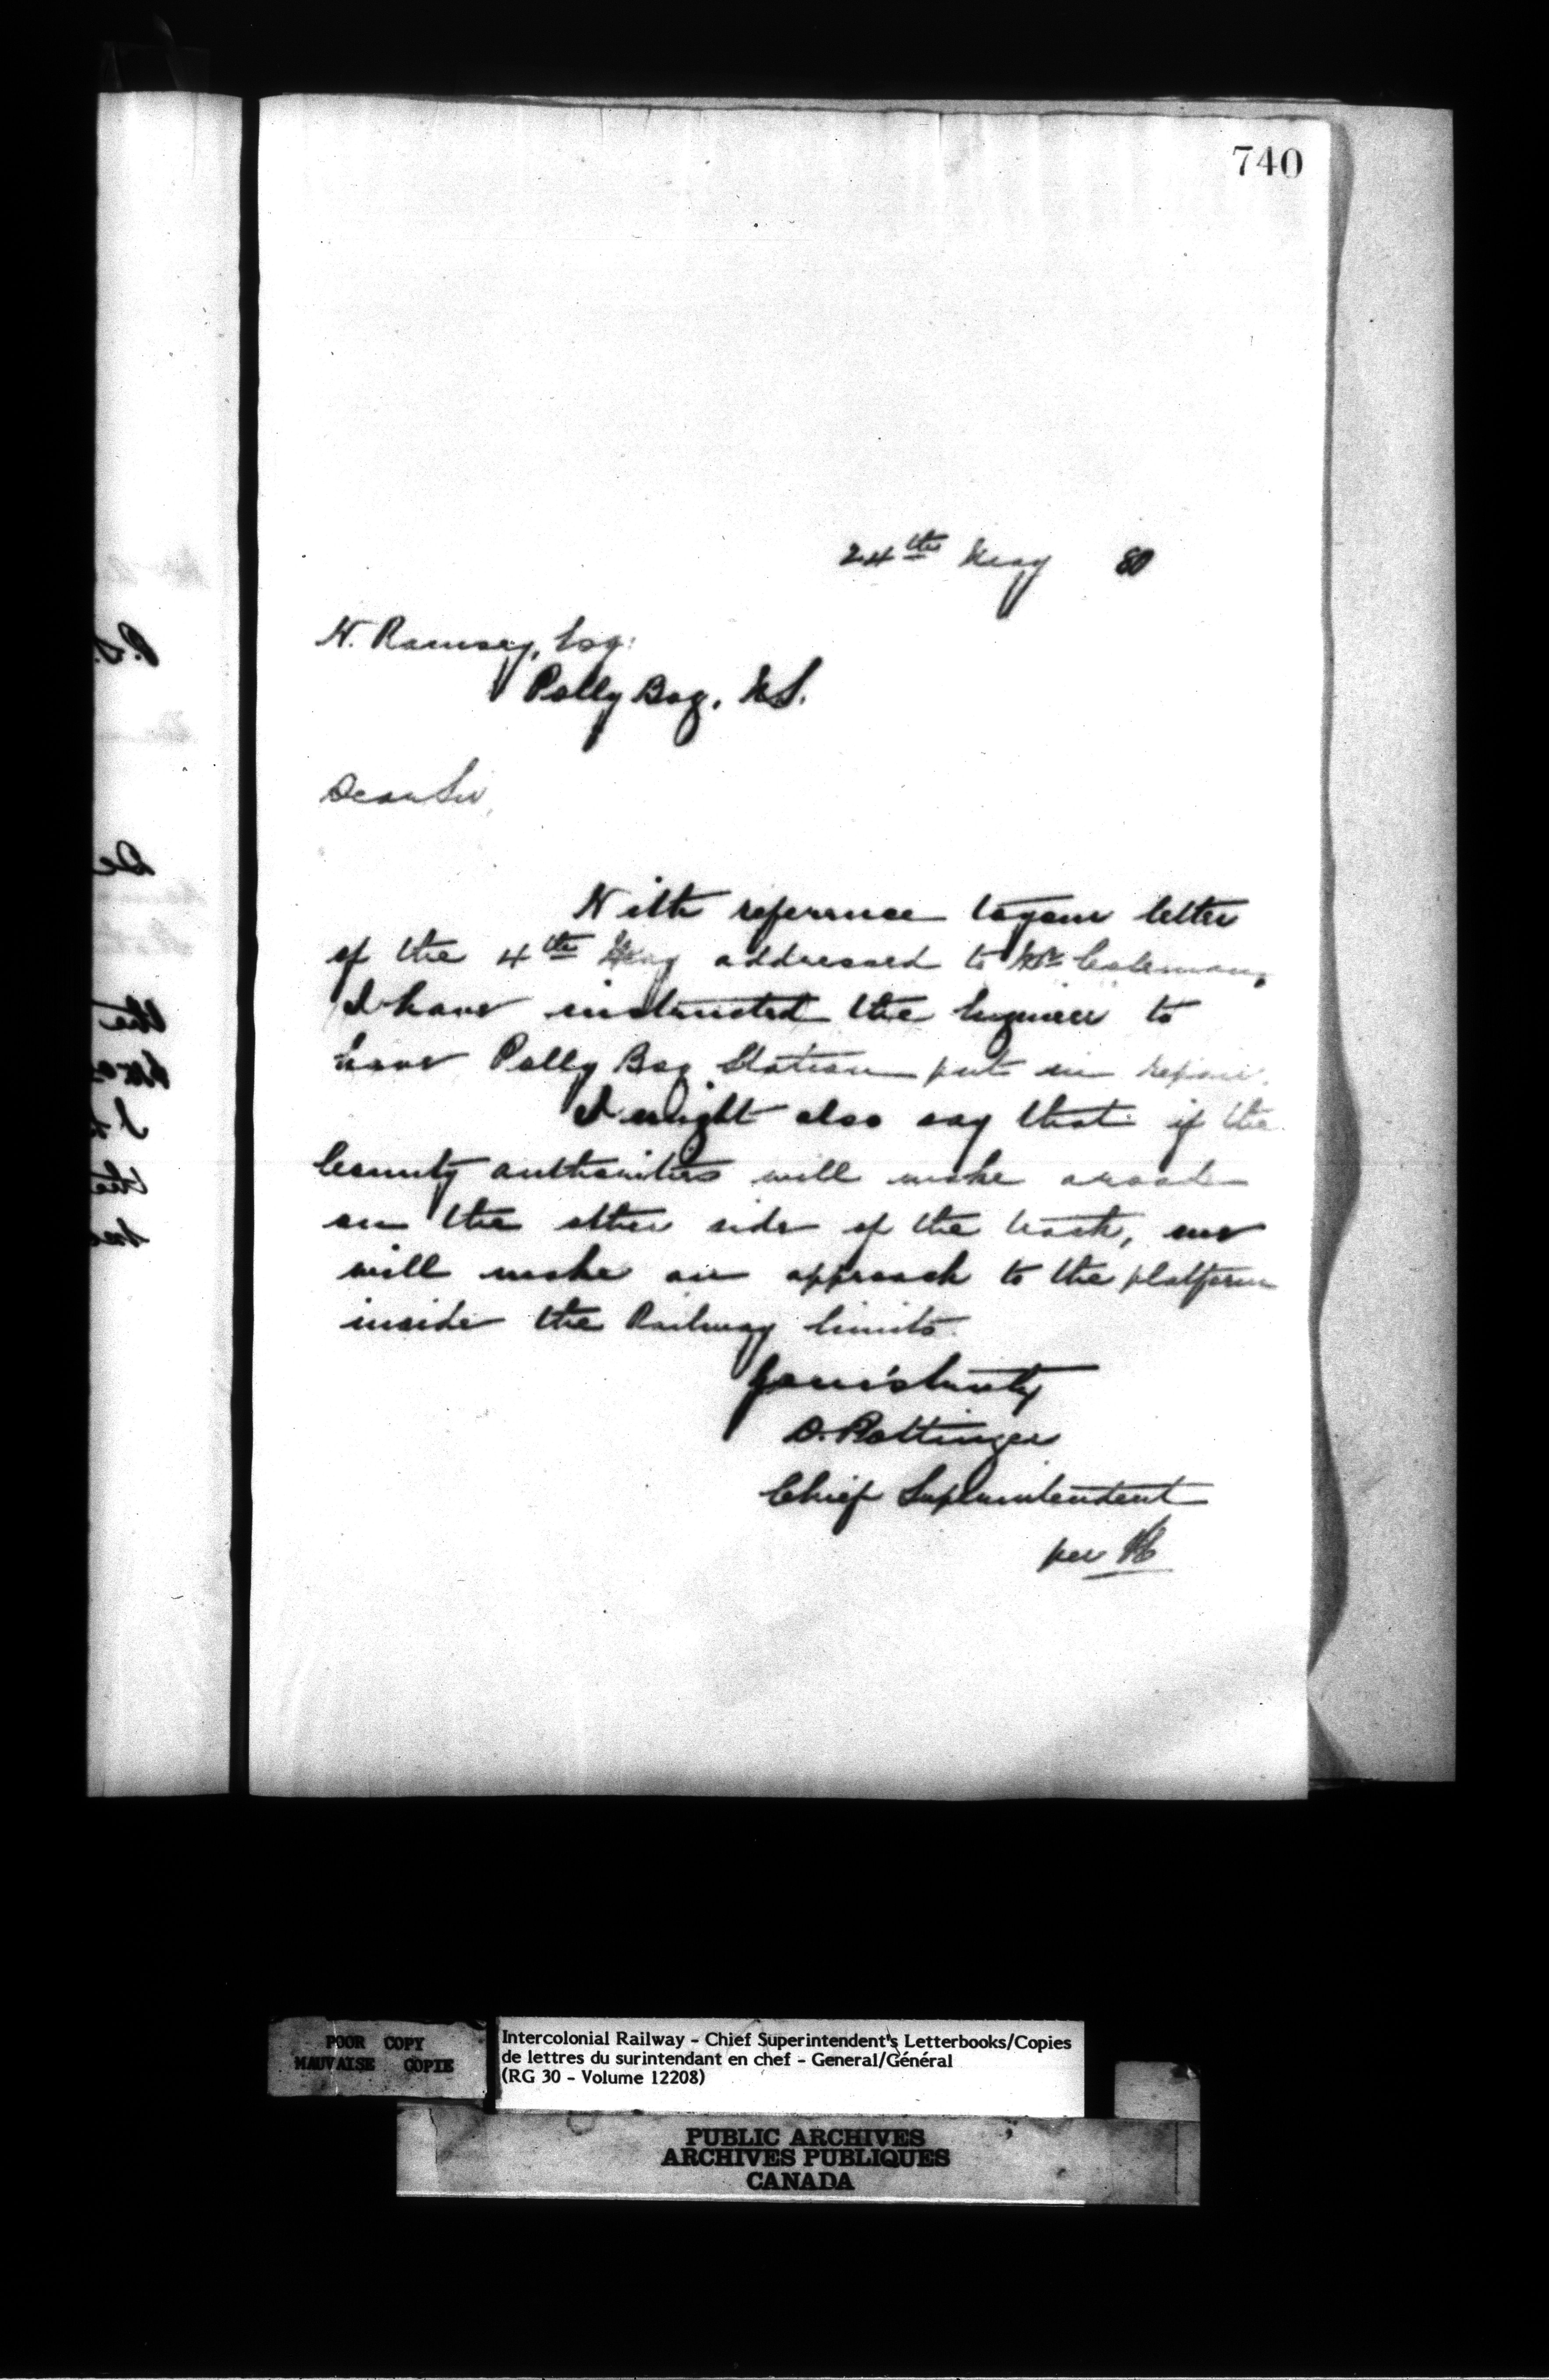 740
24th May 80
W. Ramsey, Esq:
Polly Bog, N.S.
Dear Sir,
With reference to your letter
of the 4th May addressed to Mr Coleman,
I have instructed the Engineer to
have Polly Bog Station put in repair.
I might also say that if the
County authorities will make a road
on the other side of the track, we
will make an approach to the platform
inside the Railway limits.
Yours truly
D. Pottinger
Chief Superintendent
per
POOR COPY
MAUVAISE COPIE
Intercolonial Railway - Chief Superintendent's Letterbooks/Copies
de lettres du surintendant en chef - General/Général
(RG 30 - Volume 12208)
PUBLIC ARCHIVES
ARCHIVES PUBLIQUES
CANADA